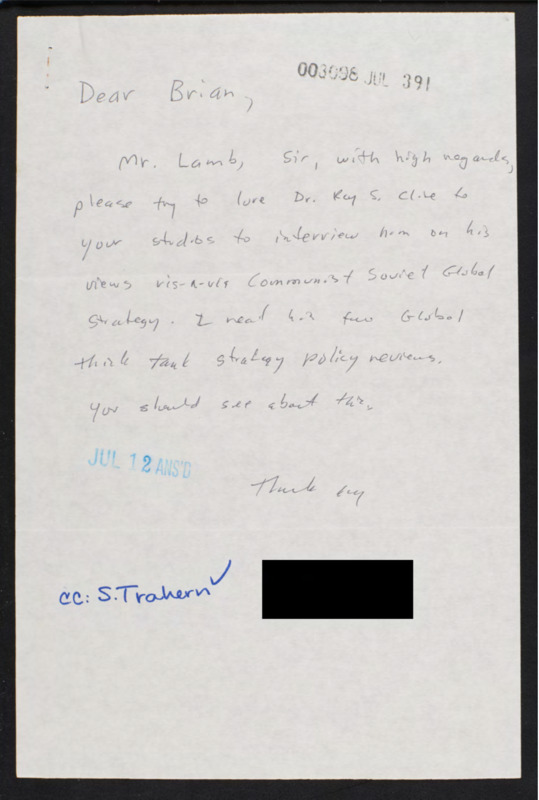 003098 JUL 391
Dear Brian,
Mr. Lamb, Sir, with high regards,
please try to lure Dr. Ray S. Cline to
your studios to interview him on his
views vis-a-vis Communist Soviet Global
Strategy. I read his two Global
think tank strategy policy reviews.
You should see about this.
JUL 12 ANS'D
Thank you
cc: S. Trahern